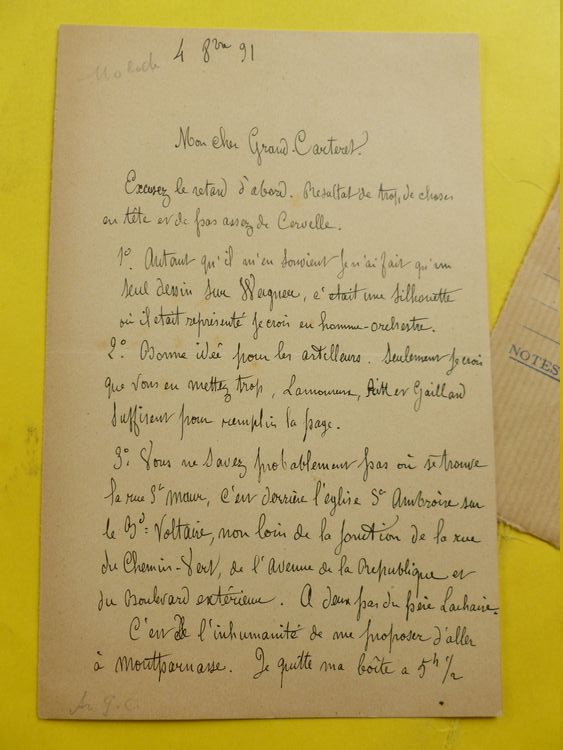 4 8bre 91
Mon cher Grand-Carteret.
Excusez le retard d'abord. Résultat de trop de choses
en tête et de pas assez de Cervelle.
1°. Autant qu'il m'en souvient Je n'ai fait qu'un
seul dessin sur Wagner, c'était une silhouette
où il était représenté Je crois en homme-orchestre.
2°. Bonne idée pour les artilleurs. Seulement Je crois
que vous en mettez trop, et Gaillard
suffisent pour remplir la page.
3°. Vous ne savez probablement pas où se trouve
la rue St Maur, c'est derrière l'église St Ambroise sur
le Bd Voltaire, non loin de la jonction de la rue
du Chemin-Vert, de l'Avenue de la République et
du Boulevard extérieur. A deux pas du père Lachaise.
C'est de l'inhumanité de me proposer d'aller
à Montparnasse. Je quitte ma boîte a 5h 1/2
NOTES